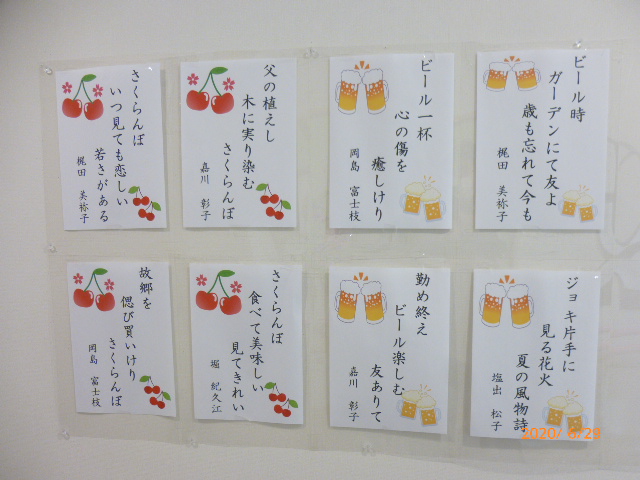 ビール時
ガーデンにて友よ
歳も忘れて今も
梶田 美祢子
ビール一杯
心の傷を
癒しけり
岡島 富士枝
父の植えし
木に実り染む
さくらんぼ
嘉川 彰子
さくらんぼ
いつ見ても恋しい
若さがある
梶田 美祢子
ジョキ片手に
見る花火
夏の風物詩
塩出 松子
勤め終え
ビール楽しむ
友ありて
嘉川 彰子
さくらんぼ
食べて美味しい
見てきれい
堀 紀久江
故郷を
偲び買いけり
さくらんぼ
岡島 富士枝